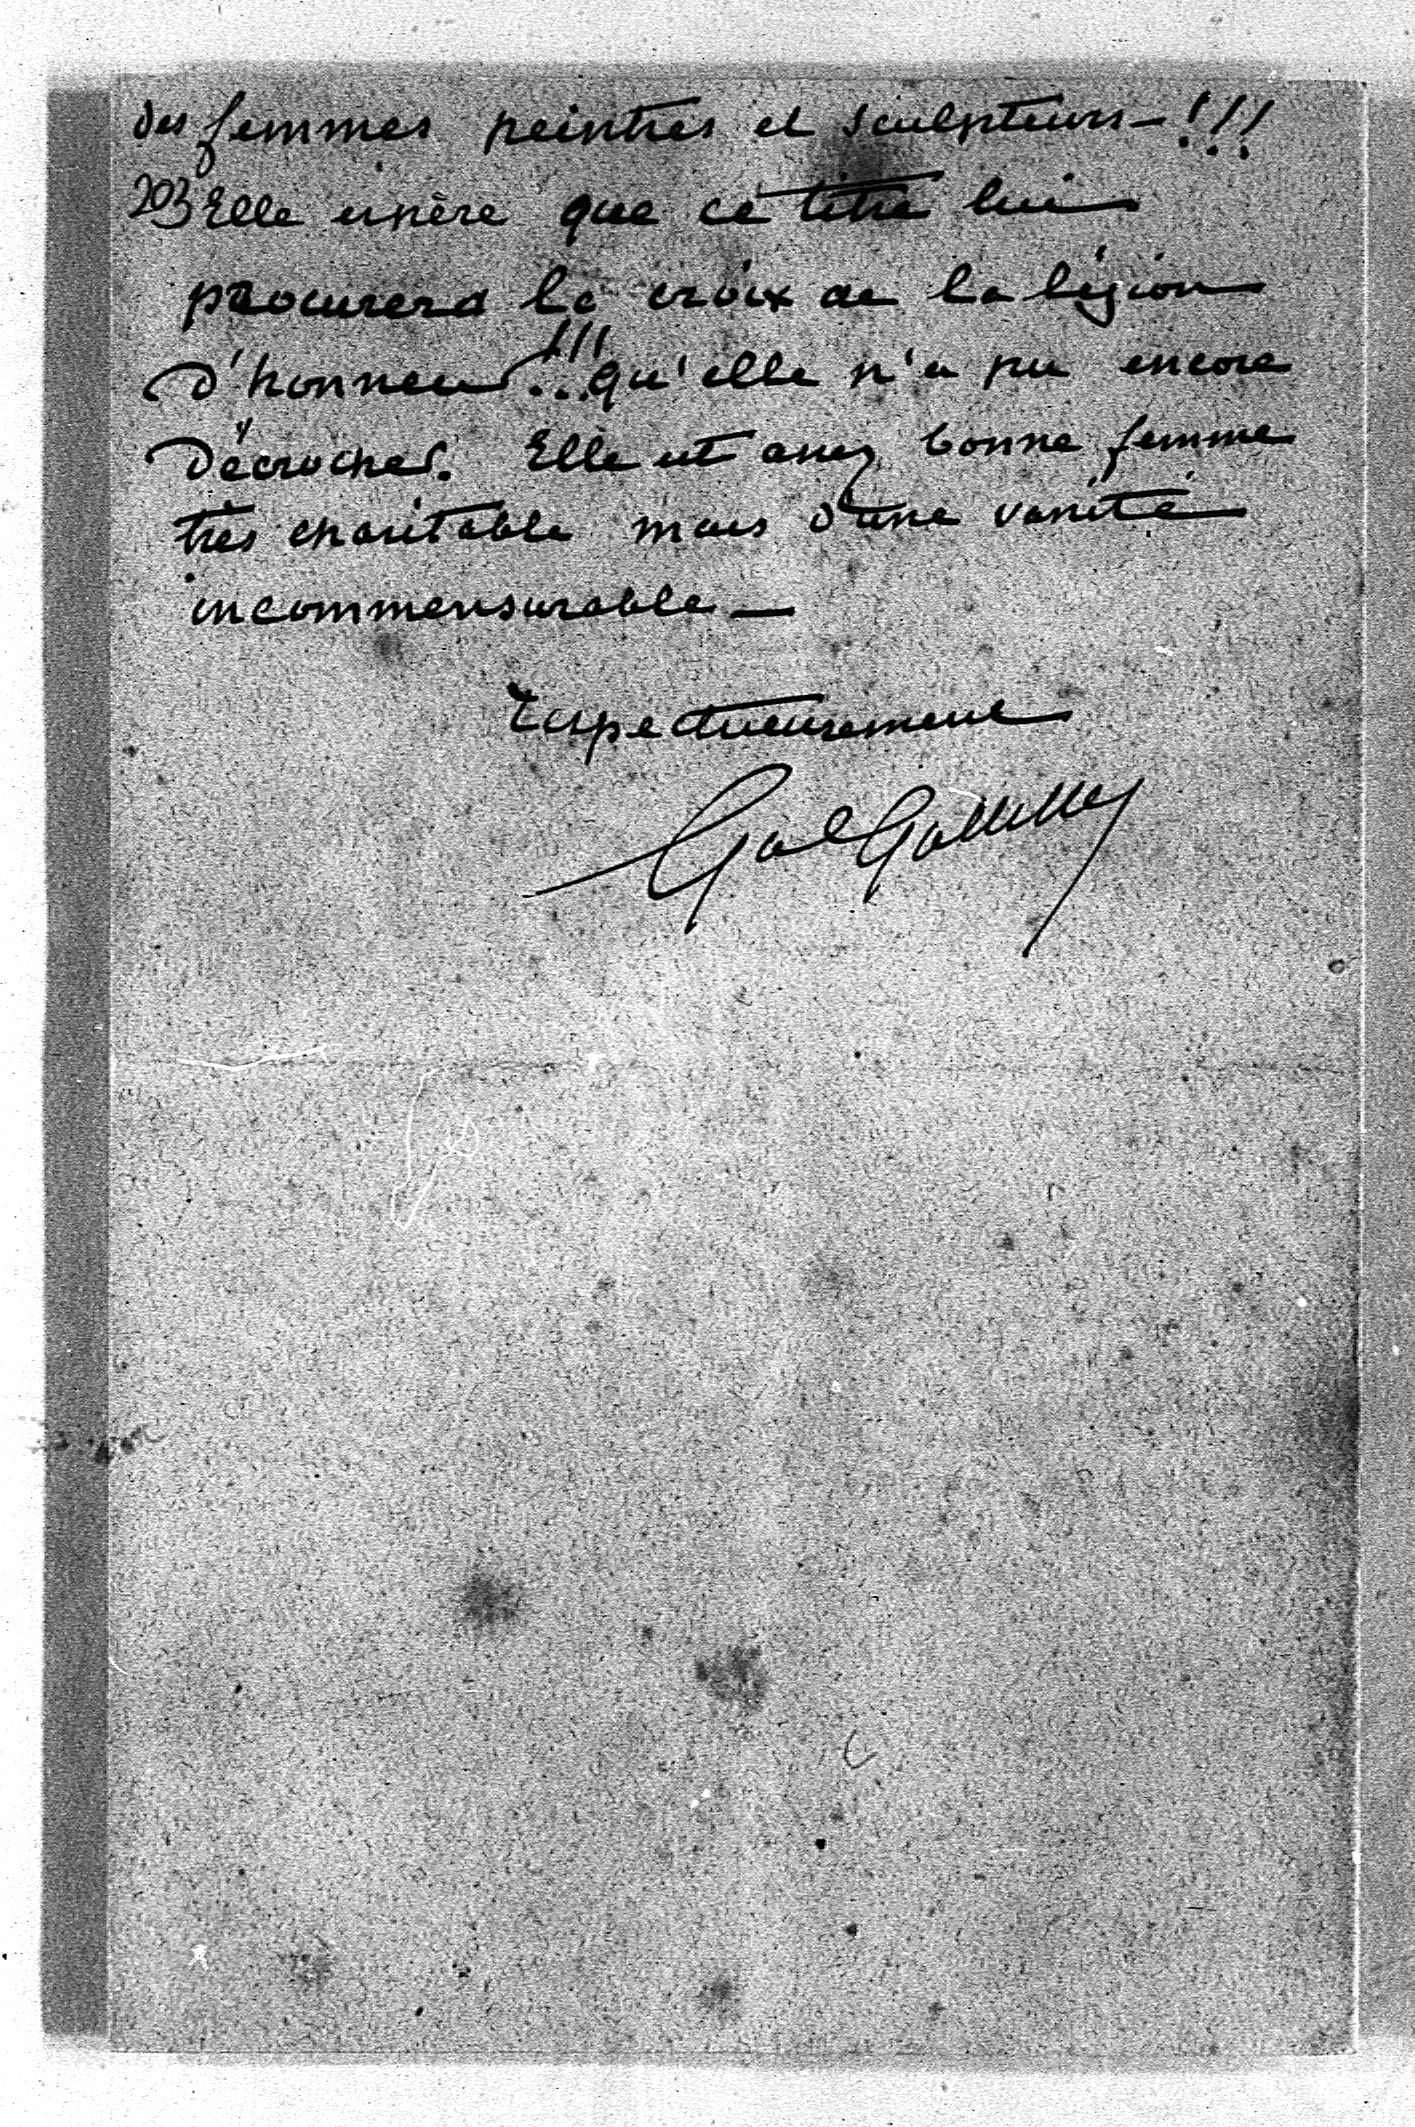 des femmes peintres et sculpteurs – !!!
203 Elle espère que ce titre lui
procurera la croix de la légion
d'honneur !!! qu'elle n'a pu encore
décrocher. Elle est assez bonne femme
très charitable mais d'une vanité
incommensurable –
respectueusement